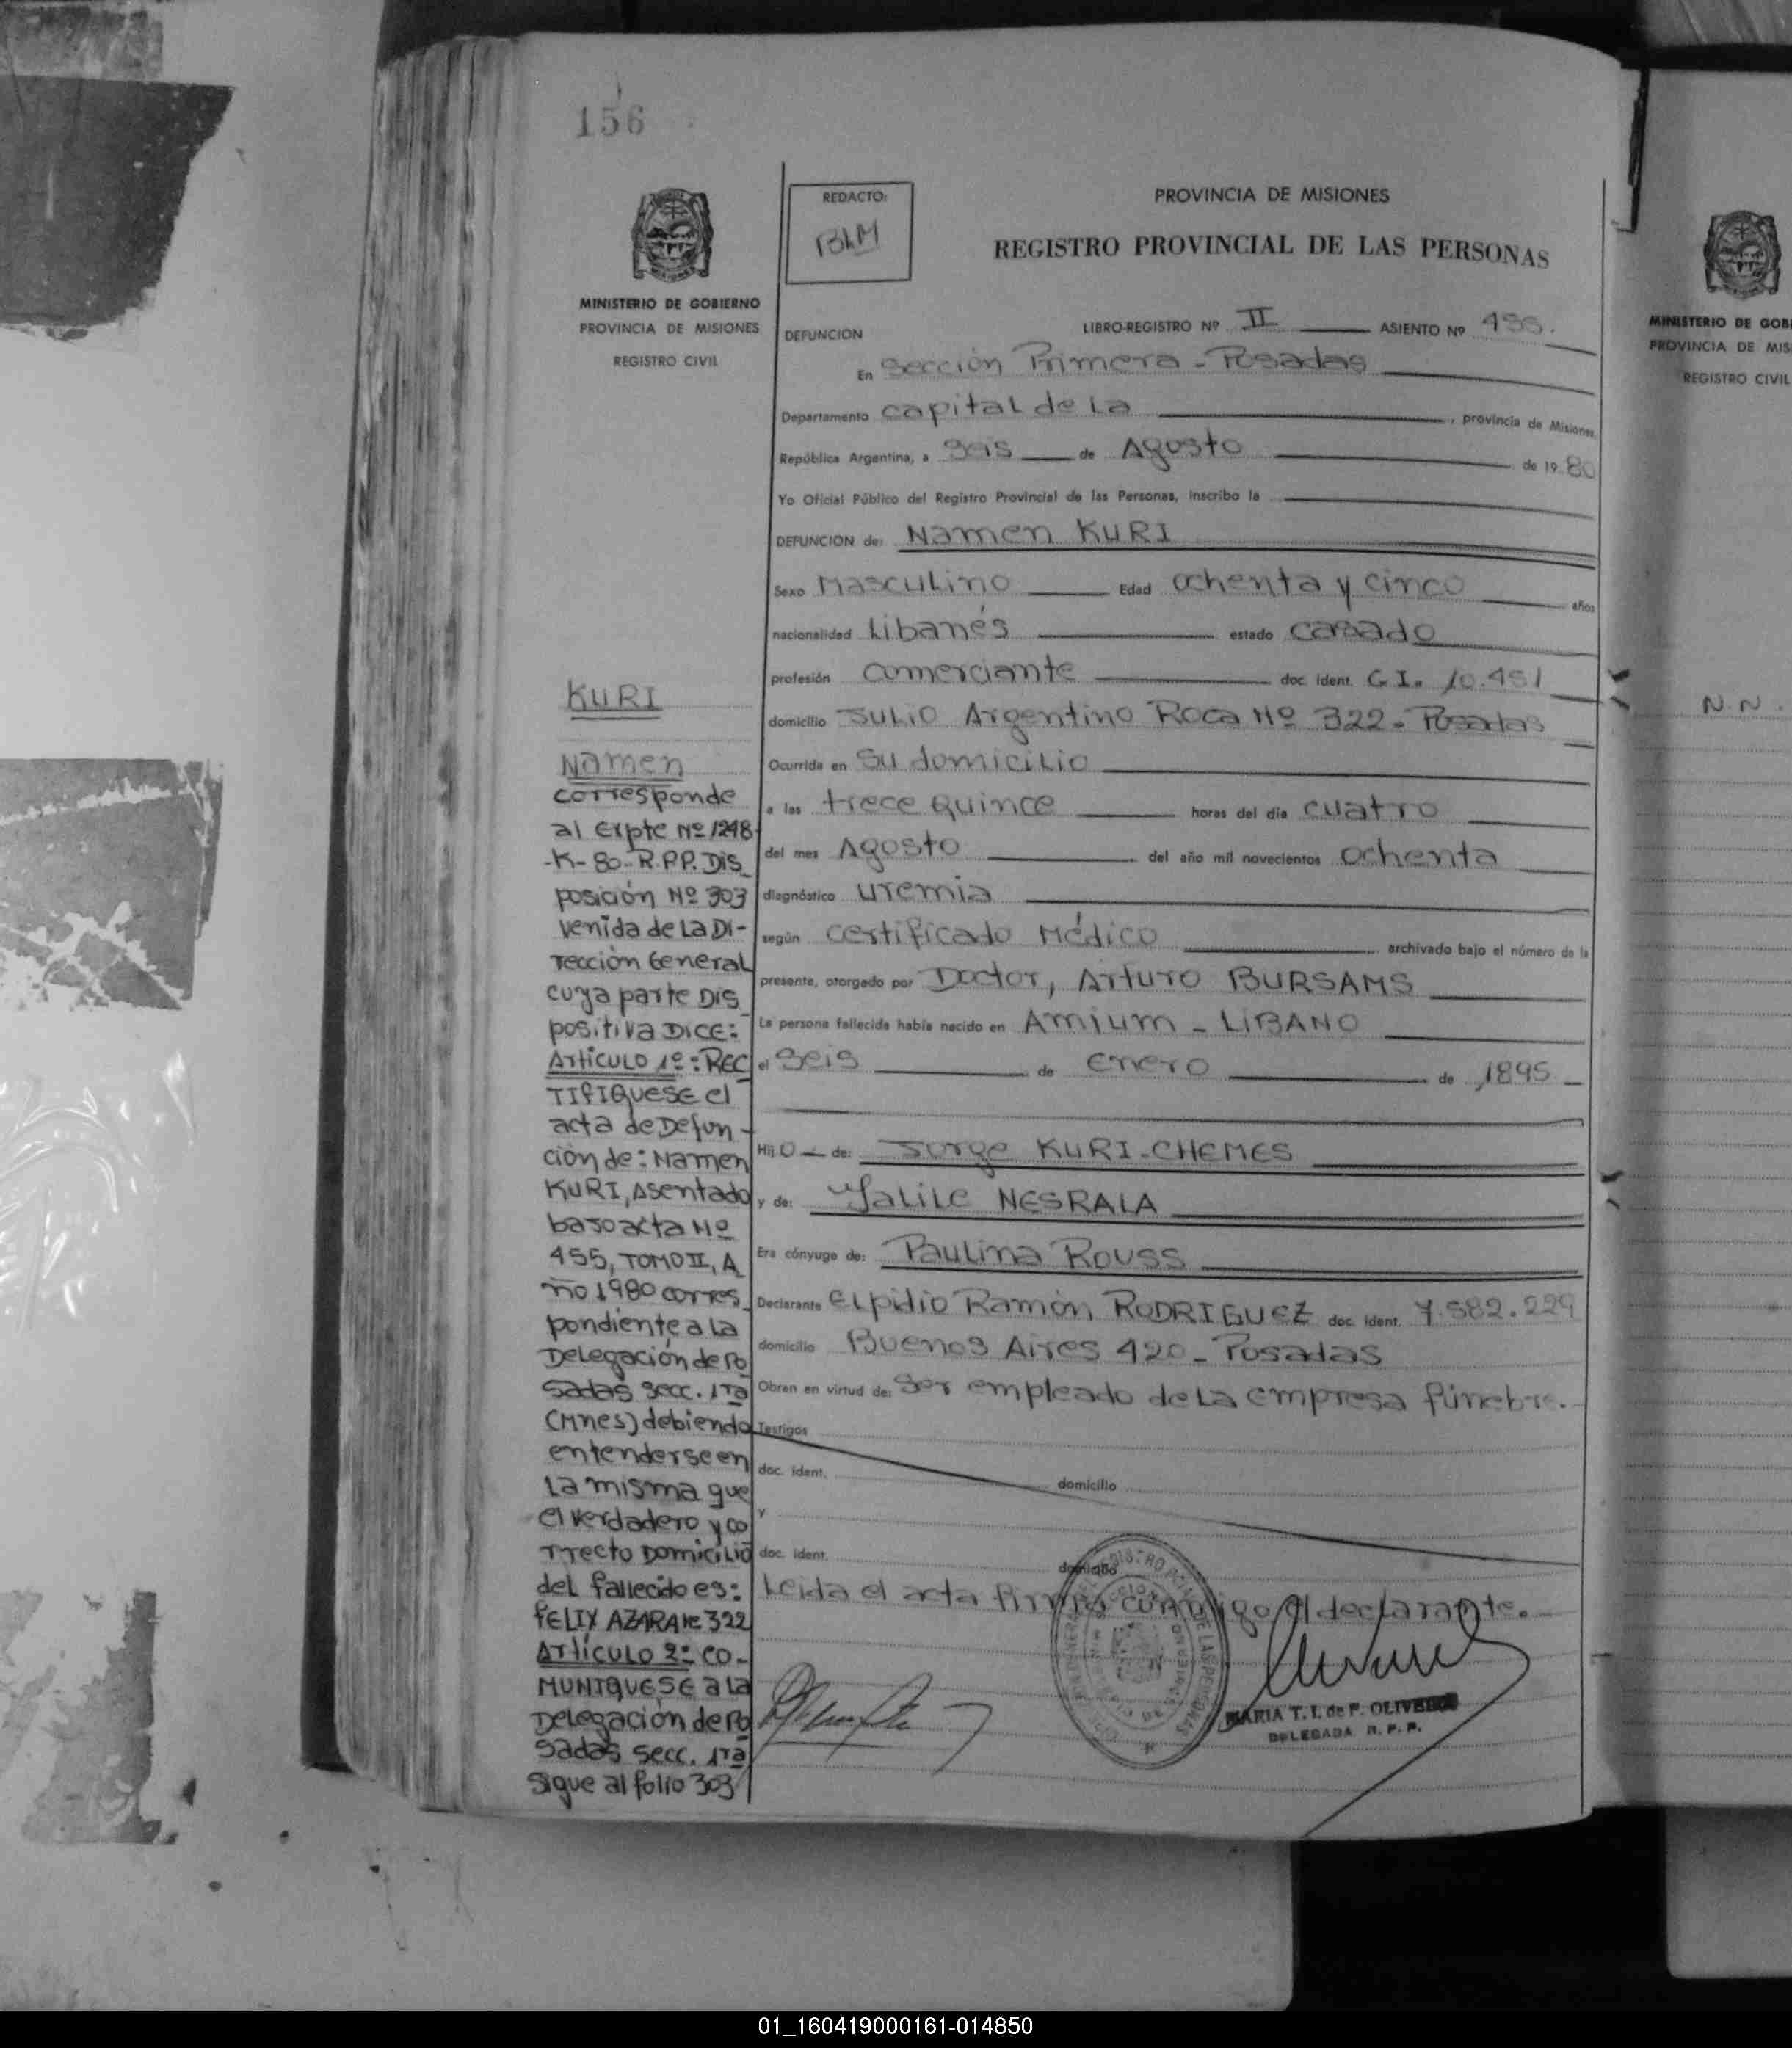 156
MINISTERIO DE GOBIERNO
PROVINCIA DE MISIONES
REGISTRO CIVIL
REDACTO:
BLM
PROVINCIA DE MISIONES
REGISTRO PROVINCIAL DE LAS PERSONAS
DEFUNCION LIBRO-REGISTRO Nº II ASIENTO Nº 455.
En Sección Primera - Posadas
Departamento Capital de La , provincia de Misiones,
República Argentina, a Seis de Agosto de 19 80
Yo Oficial Público del Registro Provincial de las Personas, inscribo la
DEFUNCION de: Namen KURI
Sexo Masculino Edad ochenta y cinco años
nacionalidad Libanés estado casado
profesión comerciante doc. ident. C.I. 10.451
domicilio Julio Argentino Roca Nº 322 - Posadas
Ocurrida en su domicilio
a las trece quince horas del día cuatro
del mes Agosto del año mil novecientos ochenta
diagnóstico uremia
según certificado Médico archivado bajo el número de la
presente, otorgado por Doctor, Arturo BURSAMS
La persona fallecida había nacido en Amium - LIBANO
el Seis de enero de 1895
Hij o de: Jorge KURI-CHEMES
y de: Yalile NESRALA
Era cónyuge de: Paulina ROUSS
Declarante Elpidio Ramón RODRIGUEZ doc. ident. 7.582.229
domicilio Buenos Aires 420 - Posadas
Obran en virtud de: ser empleado de La empresa fúnebre.
Testigos
doc. ident. domicilio
y
doc. ident. domicilio
Leida el acta firma conmigo el declarante.
MARIA T. I. de F. OLIVEIRA
DELEGADA R. P. P.
KURI
Namen
corresponde
al Expte Nº 1248
-K-80-R.P.P. Dis
posición Nº 303
venida de La Di-
rección General
cuya parte Dis
positiva DICE:
Artículo 1º: REC
TIFIQUESE el
acta de Defun-
ción de: Namen
KURI, Asentado
bajo acta Nº
455, TOMO II, A
ño 1980 corres
pondiente a La
Delegación de Po
sadas secc. 1ra
(Mnes) debiendo
entenderse en
La misma que
el verdadero y co
rrecto Domicilio
del fallecido es:
FELIX AZARA Nº 322
Artículo 2º: CO-
MUNIQUESE a La
Delegación de Po
sadas secc. 1ra
Sigue al folio 303
MINISTERIO DE GOBI
PROVINCIA DE MIS
REGISTRO CIVIL
N.N.
01_160419000161-014850